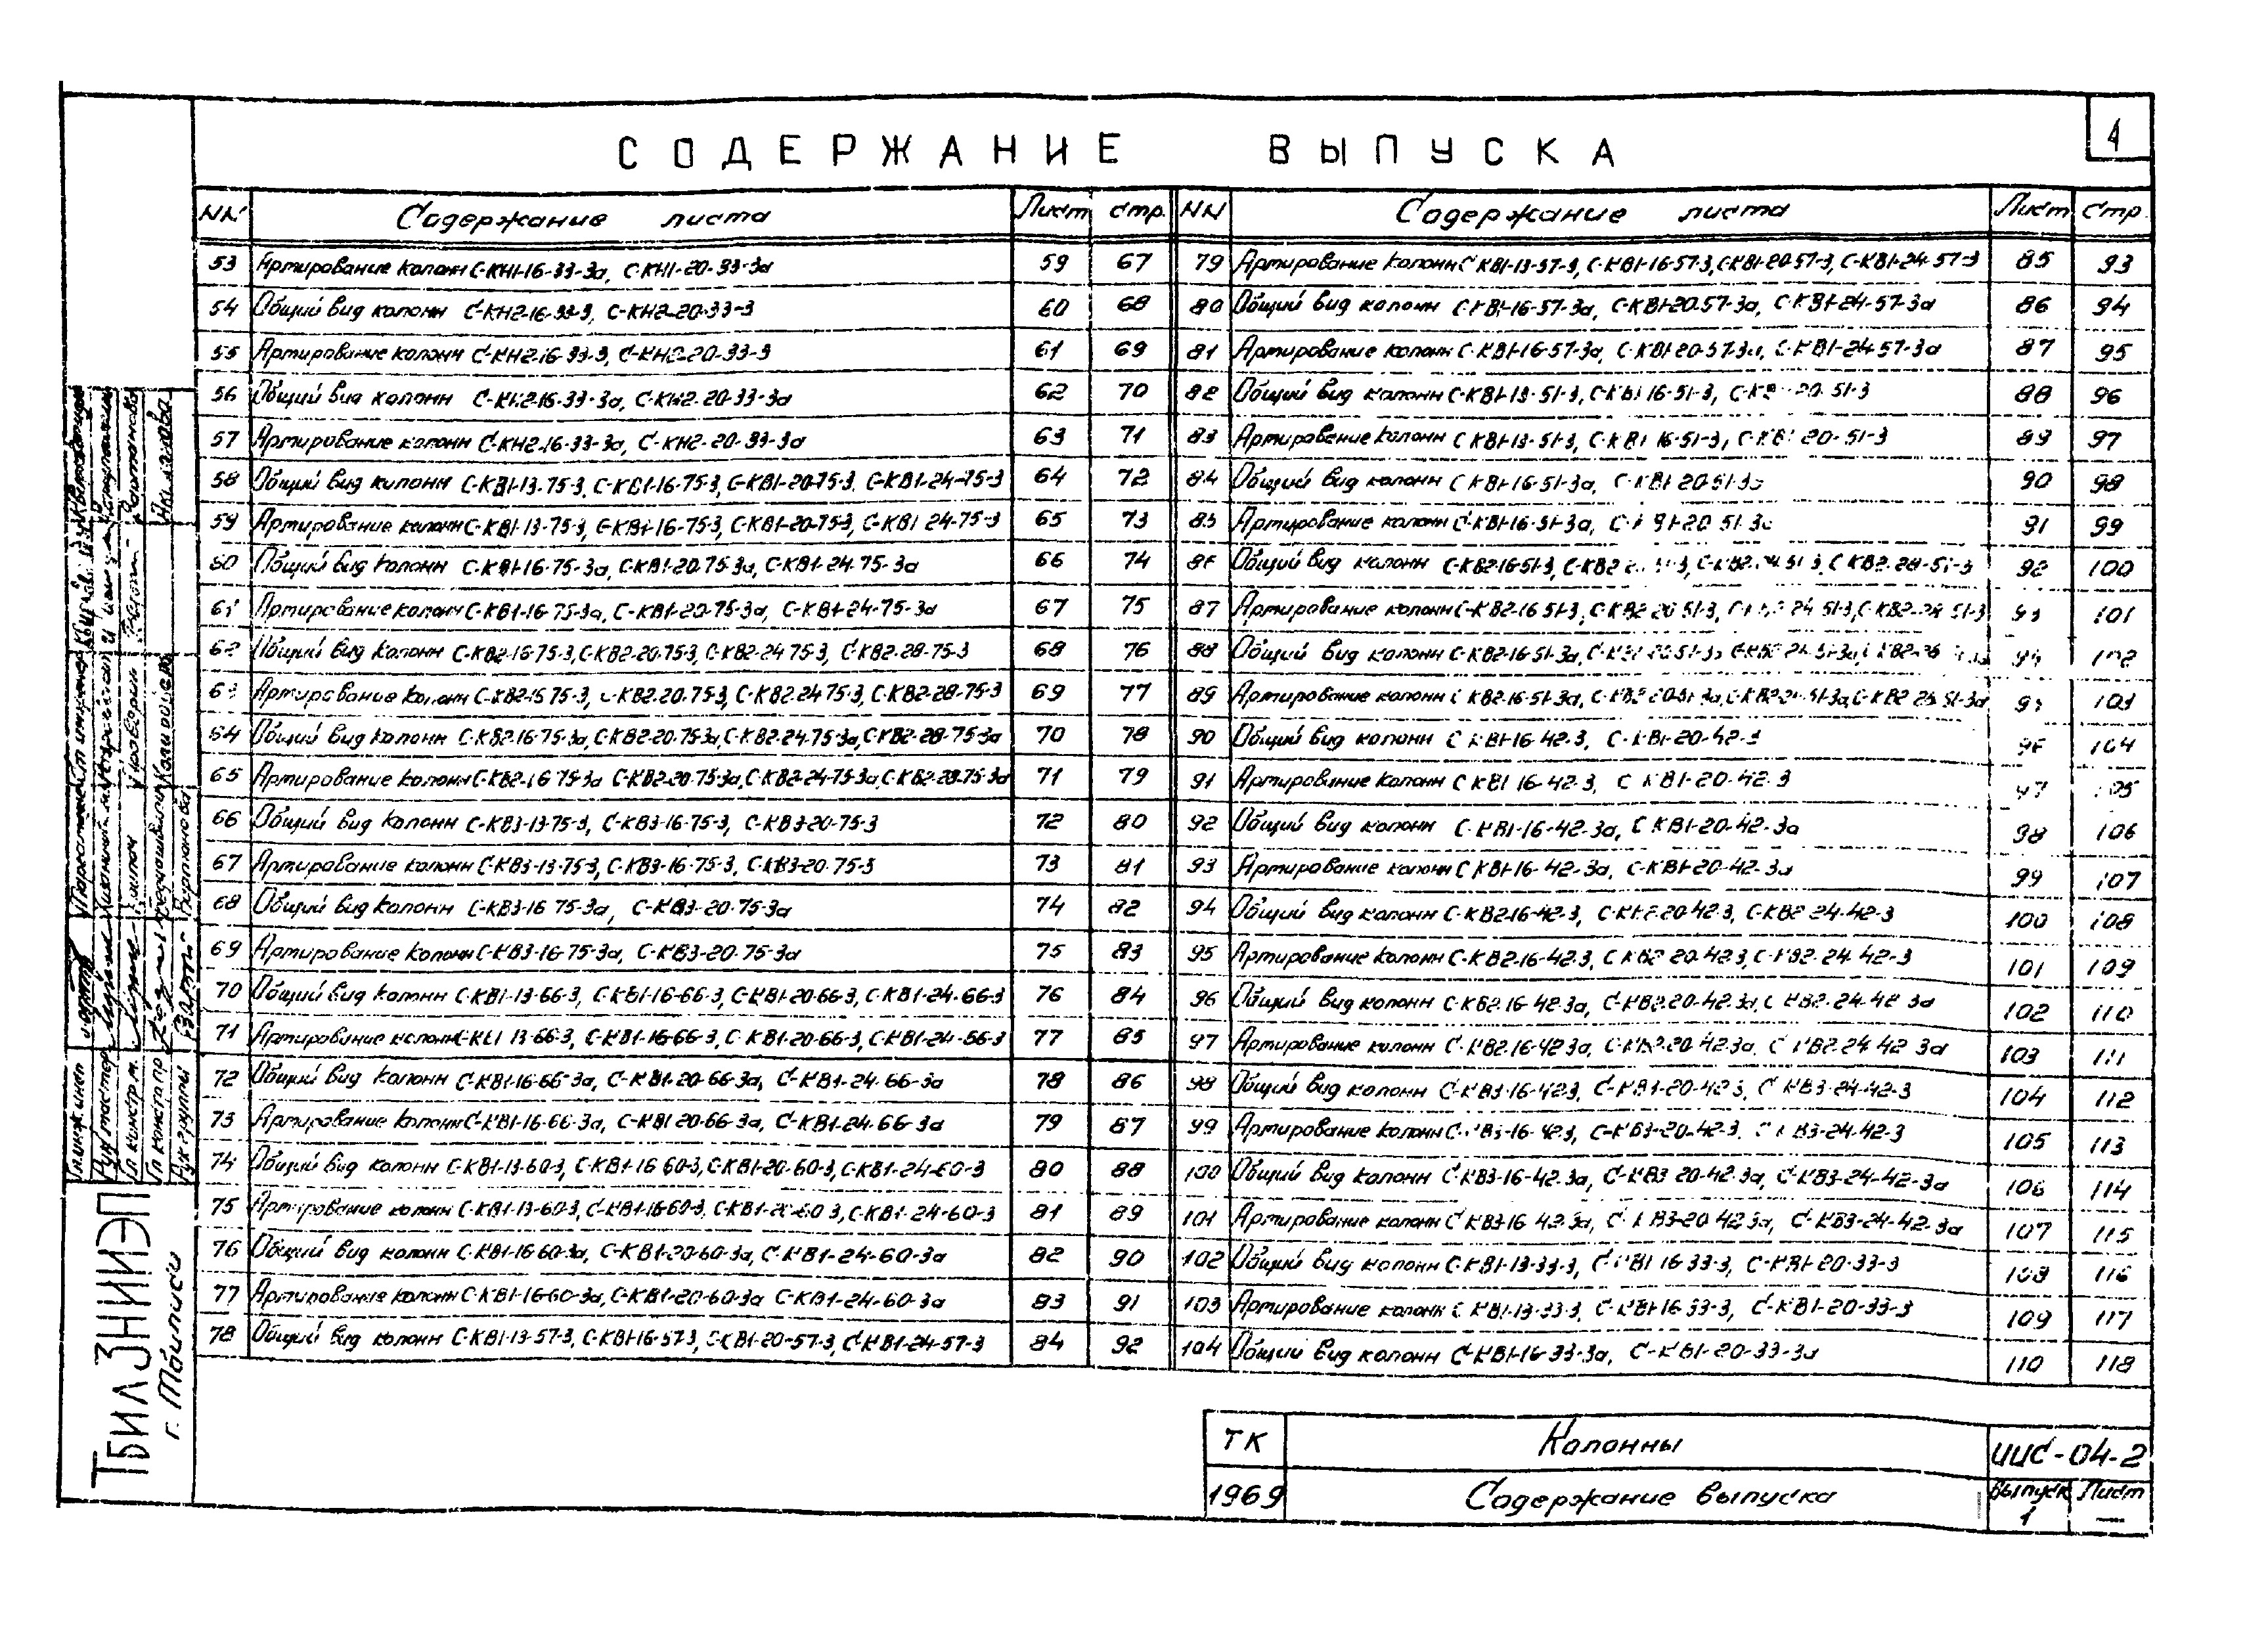 СОДЕРЖАНИЕ ВЫПУСКА
4
NN Содержание листа Лист стр.
53 Армирование колонн С-КН1-16-33-3а, С-КН1-20-33-3а 59 67
54 Общий вид колонн С-КН2-16-33-3, С-КН2-20-33-3 60 68
55 Армирование колонн С-КН2-16-33-3, С-КН2-20-33-3 61 69
56 Общий вид колонн С-КН2-16-33-3а, С-КН2-20-33-3а 62 70
57 Армирование колонн С-КН2-16-33-3а, С-КН2-20-33-3а 63 71
58 Общий вид колонн С-КВ1-13-75-3, С-КВ1-16-75-3, С-КВ1-20-75-3, С-КВ1-24-75-3 64 72
59 Армирование колонн С-КВ1-13-75-3, С-КВ1-16-75-3, С-КВ1-20-75-3, С-КВ1-24-75-3 65 73
60 Общий вид колонн С-КВ1-16-75-3а, С-КВ1-20-75-3а, С-КВ1-24-75-3а 66 74
61 Армирование колонн С-КВ1-16-75-3а, С-КВ1-20-75-3а, С-КВ1-24-75-3а 67 75
62 Общий вид колонн С-КВ2-16-75-3, С-КВ2-20-75-3, С-КВ2-24-75-3, С-КВ2-28-75-3 68 76
63 Армирование колонн С-КВ2-16-75-3, С-КВ2-20-75-3, С-КВ2-24-75-3, С-КВ2-28-75-3 69 77
64 Общий вид колонн С-КВ2-16-75-3а, С-КВ2-20-75-3а, С-КВ2-24-75-3а, С-КВ2-28-75-3а 70 78
65 Армирование колонн С-КВ2-16-75-3а С-КВ2-20-75-3а, С-КВ2-24-75-3а, С-КВ2-28-75-3а 71 79
66 Общий вид колонн С-КВ3-13-75-3, С-КВ3-16-75-3, С-КВ3-20-75-3 72 80
67 Армирование колонн С-КВ3-13-75-3, С-КВ3-16-75-3, С-КВ3-20-75-3 73 81
68 Общий вид колонн С-КВ3-16-75-3а, С-КВ3-20-75-3а 74 82
69 Армирование колонн С-КВ3-16-75-3а, С-КВ3-20-75-3а 75 83
70 Общий вид колонн С-КВ1-13-66-3, С-КВ1-16-66-3, С-КВ1-20-66-3, С-КВ1-24-66-3 76 84
71 Армирование колонн С-КВ1-13-66-3, С-КВ1-16-66-3, С-КВ1-20-66-3, С-КВ1-24-66-3 77 85
72 Общий вид колонн С-КВ1-16-66-3а, С-КВ1-20-66-3а, С-КВ1-24-66-3а 78 86
73 Армирование колонн С-КВ1-16-66-3а, С-КВ1-20-66-3а, С-КВ1-24-66-3а 79 87
74 Общий вид колонн С-КВ1-13-60-3, С-КВ1-16-60-3, С-КВ1-20-60-3, С-КВ1-24-60-3 80 88
75 Армирование колонн С-КВ1-13-60-3, С-КВ1-16-60-3, С-КВ1-20-60-3, С-КВ1-24-60-3 81 89
76 Общий вид колонн С-КВ1-16-60-3а, С-КВ1-20-60-3а, С-КВ1-24-60-3а 82 90
77 Армирование колонн С-КВ1-16-60-3а, С-КВ1-20-60-3а С-КВ1-24-60-3а 83 91
78 Общий вид колонн С-КВ1-13-57-3, С-КВ1-16-57-3, С-КВ1-20-57-3, С-КВ1-24-57-3 84 92
NN Содержание листа Лист Стр.
79 Армирование колонн С-КВ1-13-57-3, С-КВ1-16-57-3, С-КВ1-20-57-3, С-КВ1-24-57-3 85 93
80 Общий вид колонн С-КВ1-16-57-3а, С-КВ1-20-57-3а, С-КВ1-24-57-3а 86 94
81 Армирование колонн С-КВ1-16-57-3а, С-КВ1-20-57-3а, С-КВ1-24-57-3а 87 95
82 Общий вид колонн С-КВ1-13-51-3, С-КВ1-16-51-3, С-КВ1-20-51-3 88 96
83 Армирование колонн С-КВ1-13-51-3, С-КВ1-16-51-3, С-КВ1-20-51-3 89 97
84 Общий вид колонн С-КВ1-16-51-3а, С-КВ1-20-51-3а 90 98
85 Армирование колонн С-КВ1-16-51-3а, С-КВ1-20-51-3а 91 99
86 Общий вид колонн С-КВ2-16-51-3, С-КВ2-20-51-3, С-КВ2-24-51-3, С-КВ2-28-51-3 92 100
87 Армирование колонн С-КВ2-16-51-3, С-КВ2-20-51-3, С-КВ2-24-51-3, С-КВ2-28-51-3 93 101
88 Общий вид колонн С-КВ2-16-51-3а, С-КВ2-20-51-3а С-КВ2-24-51-3а, С-КВ2-28-51-3а 94 102
89 Армирование колонн С-КВ2-16-51-3а, С-КВ2-20-51-3а, С-КВ2-24-51-3а, С-КВ2-28-51-3а 95 103
90 Общий вид колонн С-КВ1-16-42-3, С-КВ1-20-42-3 96 104
91 Армирование колонн С-КВ1-16-42-3, С-КВ1-20-42-3 97 105
92 Общий вид колонн С-КВ1-16-42-3а, С-КВ1-20-42-3а 98 106
93 Армирование колонн С-КВ1-16-42-3а, С-КВ1-20-42-3а 99 107
94 Общий вид колонн С-КВ2-16-42-3, С-КВ2-20-42-3, С-КВ2-24-42-3 100 108
95 Армирование колонн С-КВ2-16-42-3, С-КВ2-20-42-3, С-КВ2-24-42-3 101 109
96 Общий вид колонн С-КВ2-16-42-3а, С-КВ2-20-42-3а, С-КВ2-24-42-3а 102 110
97 Армирование колонн С-КВ2-16-42-3а, С-КВ2-20-42-3а, С-КВ2-24-42-3а 103 111
98 Общий вид колонн С-КВ3-16-42-3, С-КВ3-20-42-3, С-КВ3-24-42-3 104 112
99 Армирование колонн С-КВ3-16-42-3, С-КВ3-20-42-3, С-КВ3-24-42-3 105 113
100 Общий вид колонн С-КВ3-16-42-3а, С-КВ3-20-42-3а, С-КВ3-24-42-3а 106 114
101 Армирование колонн С-КВ3-16-42-3а, С-КВ3-20-42-3а, С-КВ3-24-42-3а 107 115
102 Общий вид колонн С-КВ1-13-33-3, С-КВ1-16-33-3, С-КВ1-20-33-3 108 116
103 Армирование колонн С-КВ1-13-33-3, С-КВ1-16-33-3, С-КВ1-20-33-3 109 117
104 Общий вид колонн С-КВ1-16-33-3а, С-КВ1-20-33-3а 110 118
ТК Колонны ИИС-04-2
1969 Содержание выпуска Выпуск 1 Лист —
ТбилЗНИИЭП
г. Тбилиси
Гл. инж. инст
Рук. мастер
Гл. констр. м.
Гл. констр. пр
Рук. группы